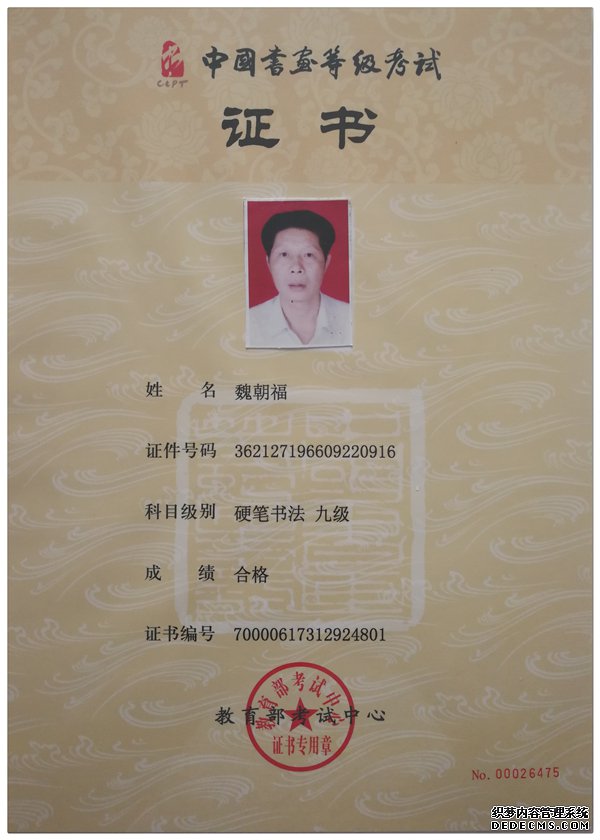 CCPT
中国书画等级考试
证书
姓名 魏朝福
证件号码 362127196609220916
科目级别 硬笔书法 九级
成绩 合格
证书编号 70000617312924801
教育部考试中心
教育部考试中心
证书专用章
No. 00026475
织梦内容管理系统
DEDECMS.COM